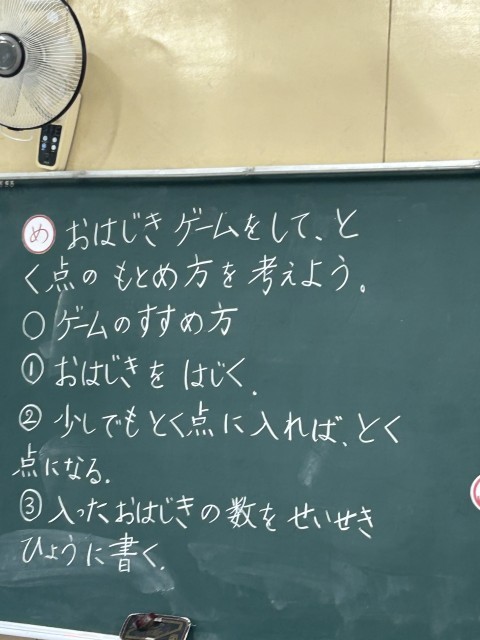 め おはじきゲームをして、と
く点のもとめ方を考えよう。
○ゲームのすすめ方
①おはじきをはじく.
②少しでもとく点に入れば、とく
点になる.
③入ったおはじきの数をせいせき
ひょうに書く.